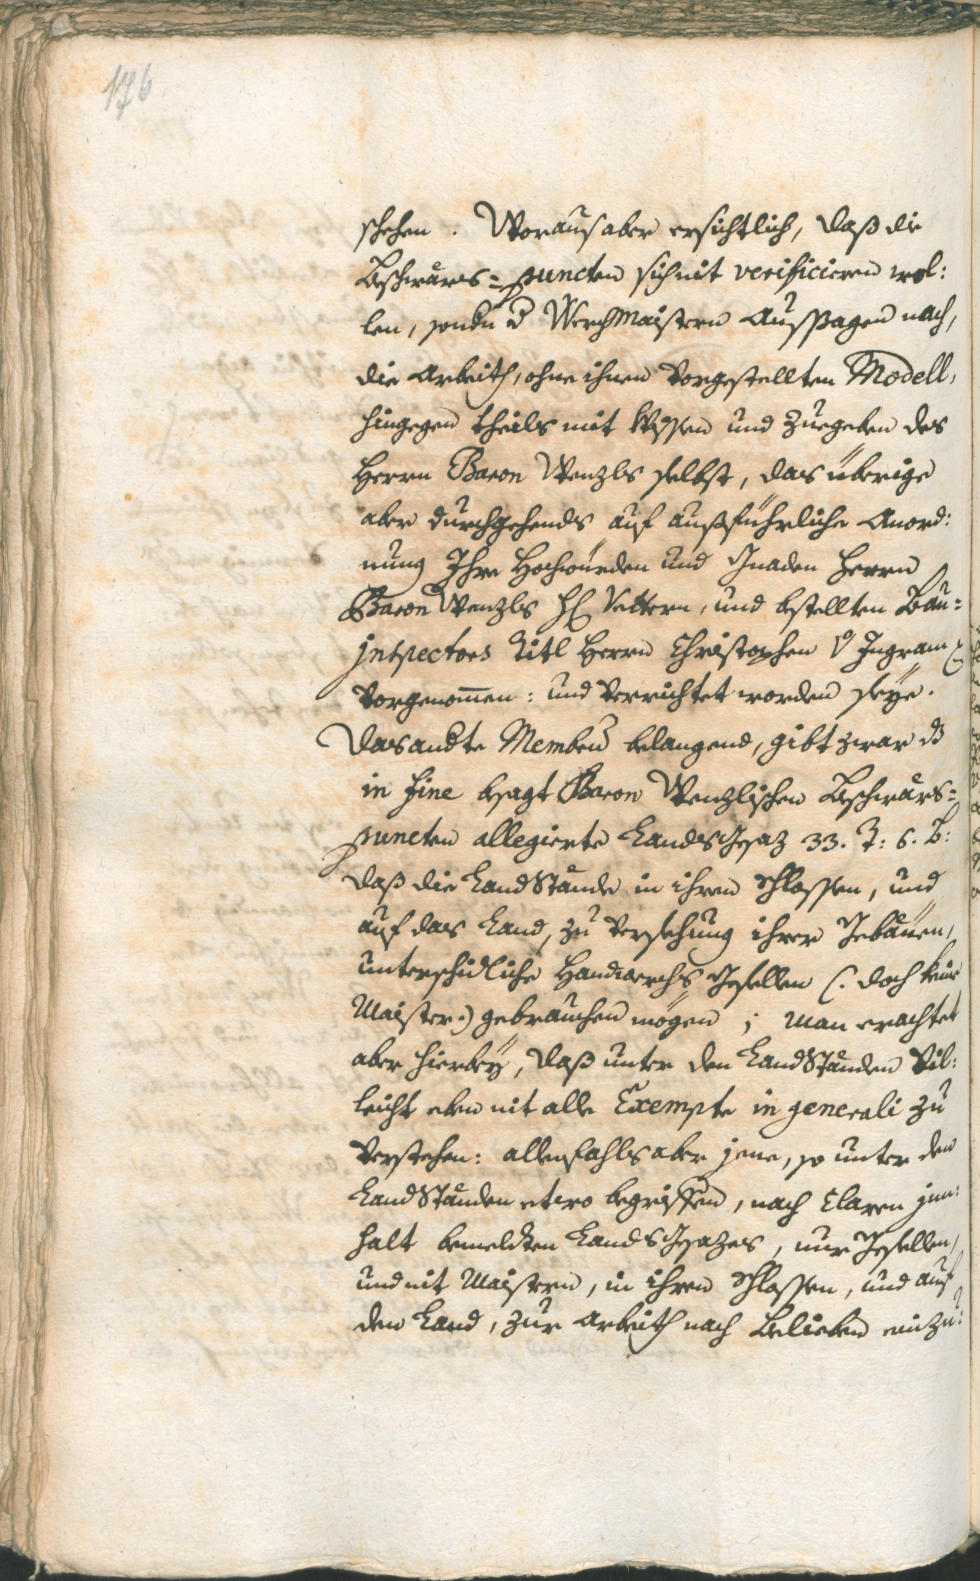 176
schehen. Woraus aber ersichtlich, daß die
Beschwärs=puncten sich nit verificieren wol:
len, sondern der WerchMaistern Aussagen nach,
die Arbeith, ohne ihnen vorgestellten Modell,
hingegen theils mit Wissen und Zuegeben des
Herrn Baron Wenzls selbst, das überige
aber durchgehends auf außführliche Anord:
nung Ihre Hochwürden und Gnaden Herrn
Baron Wenzls H: Vettern, und bstellten Bau=
jnspectors Titl Herrn Christophen v Ingram
vorgenommen: und verrichtet worden seye.
Das andte Membrum belangend, gibt zwar dz
in fine besagt Baron Wenzlischen Beschwärs=
puncten allegierte LandsGesaz 33. T: 6. B:
daß die LandStände in ihren Schlossen, und
auf das Land, zu versehung ihrer Gebäuen,
unterschidliche Handwerchs Gesellen (: doch keine
Maister:) gebrauchen mögen; Man erachtet
aber hierbey, daß unter den LandStänden vil:
leicht eben nit alle Exempte in generali zu
verstehen: allenfahls aber jene, so unter den
LandStänden etwo begriffen, nach Claren jnn:
halt bemeldten LandsGesazes, nur Gesellen,
und nit Maistern, in ihren Schlossen, und auf
den Land, zur Arbeith nach Belieben einzu: